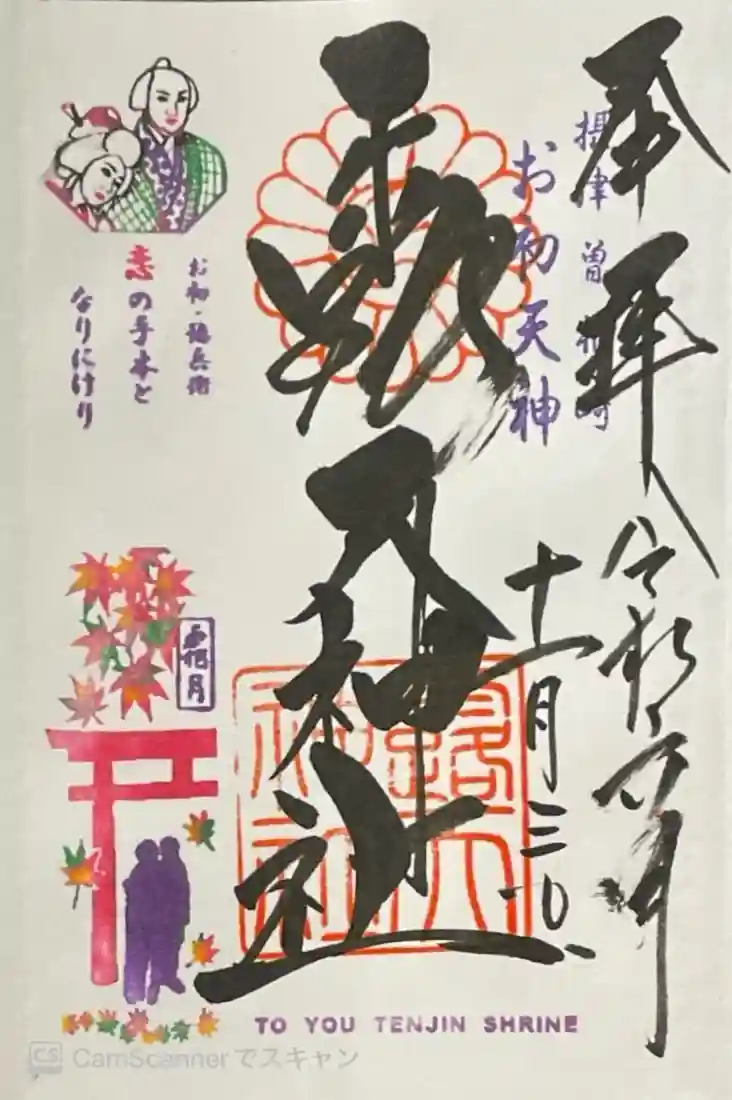 奉拝
摂津 曽根崎
お初天神
令和六年
十一月三日
露天神社
露天神社
お初・徳兵衛
恋の手本と
なりにけり
霜月
TO YOU TENJIN SHRINE
CS CamScannerでスキャン